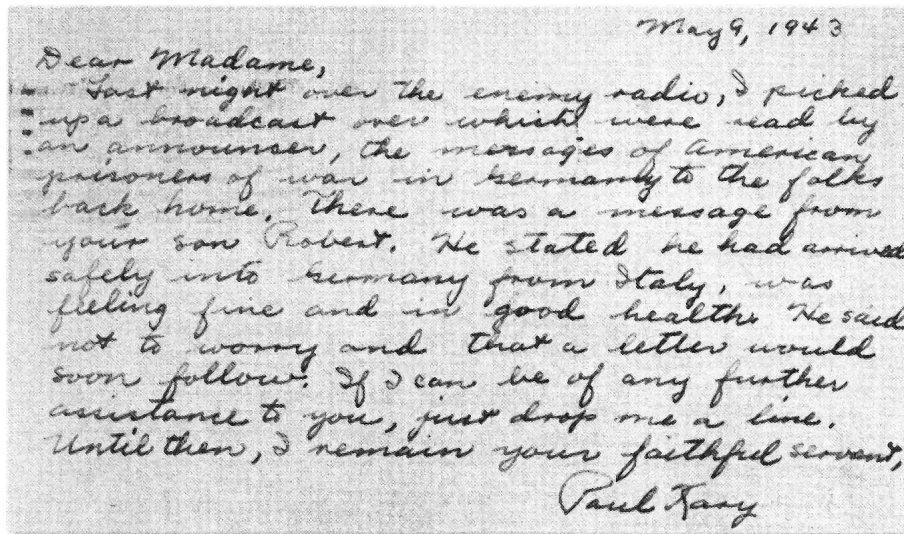 May 9, 1943
Dear Madame,
Last night over the enemy radio, I picked
up a broadcast over which were read by
an announcer, the messages of American
prisoners of war in Germany to the folks
back home. There was a message from
your son Robert. He stated he had arrived
safely into Germany from Italy, was
feeling fine and in good health. He said
not to worry and that a letter would
soon follow. If I can be of any further
assistance to you, just drop me a line.
Until then, I remain your faithful servent,
Paul